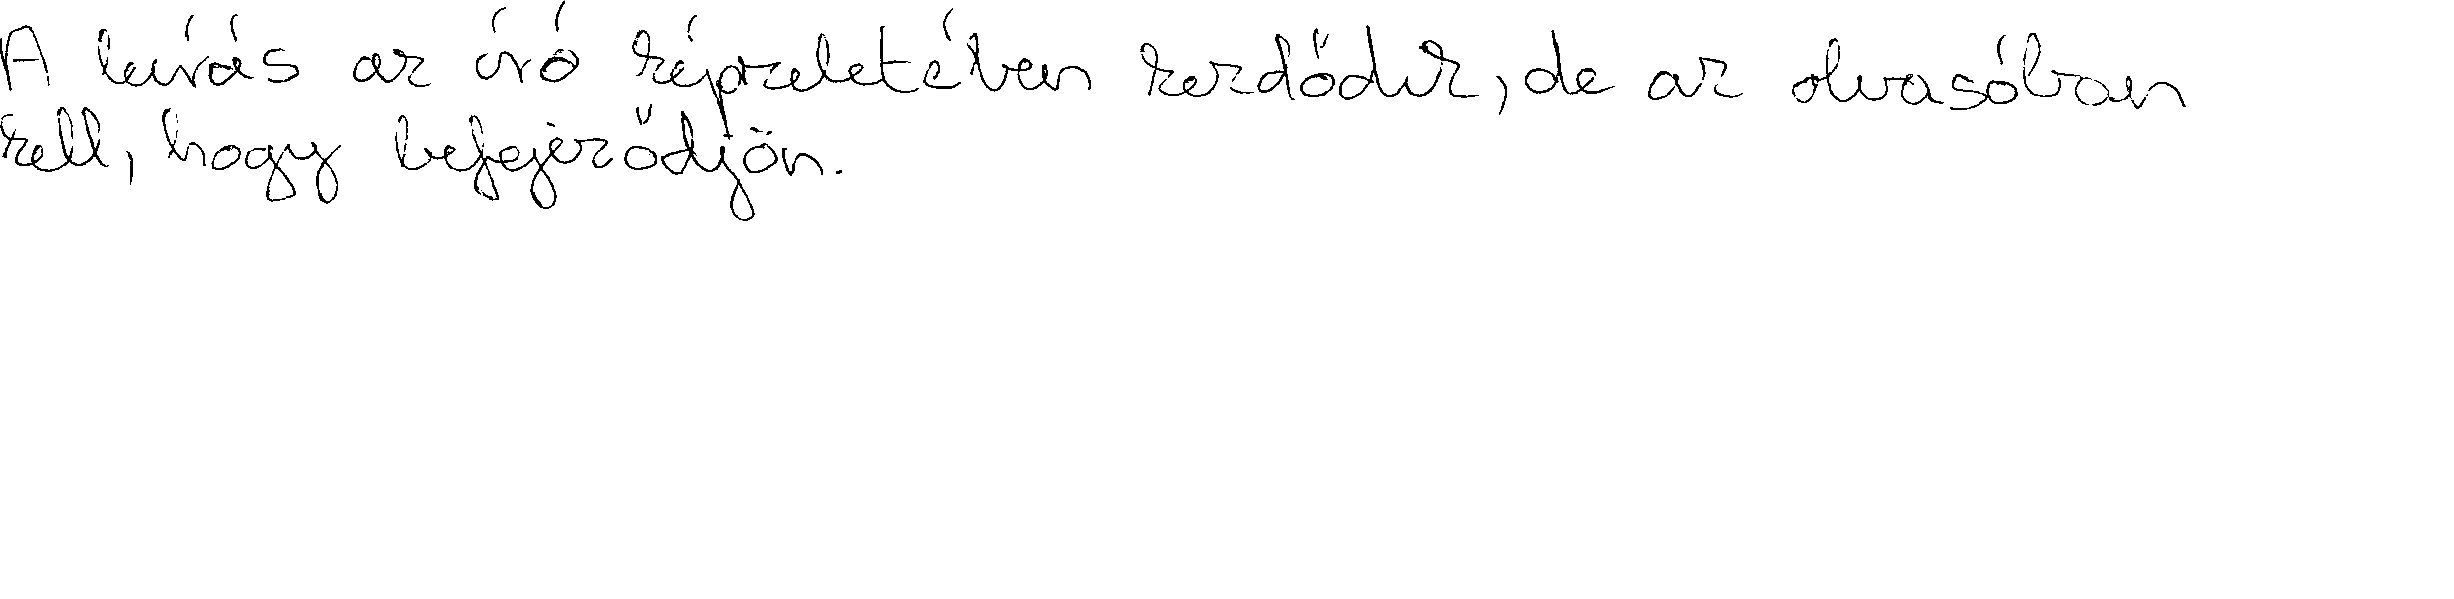 A leírás az író képzeletében kezdődik, de az olvasóban
kell, hogy befejeződjön.